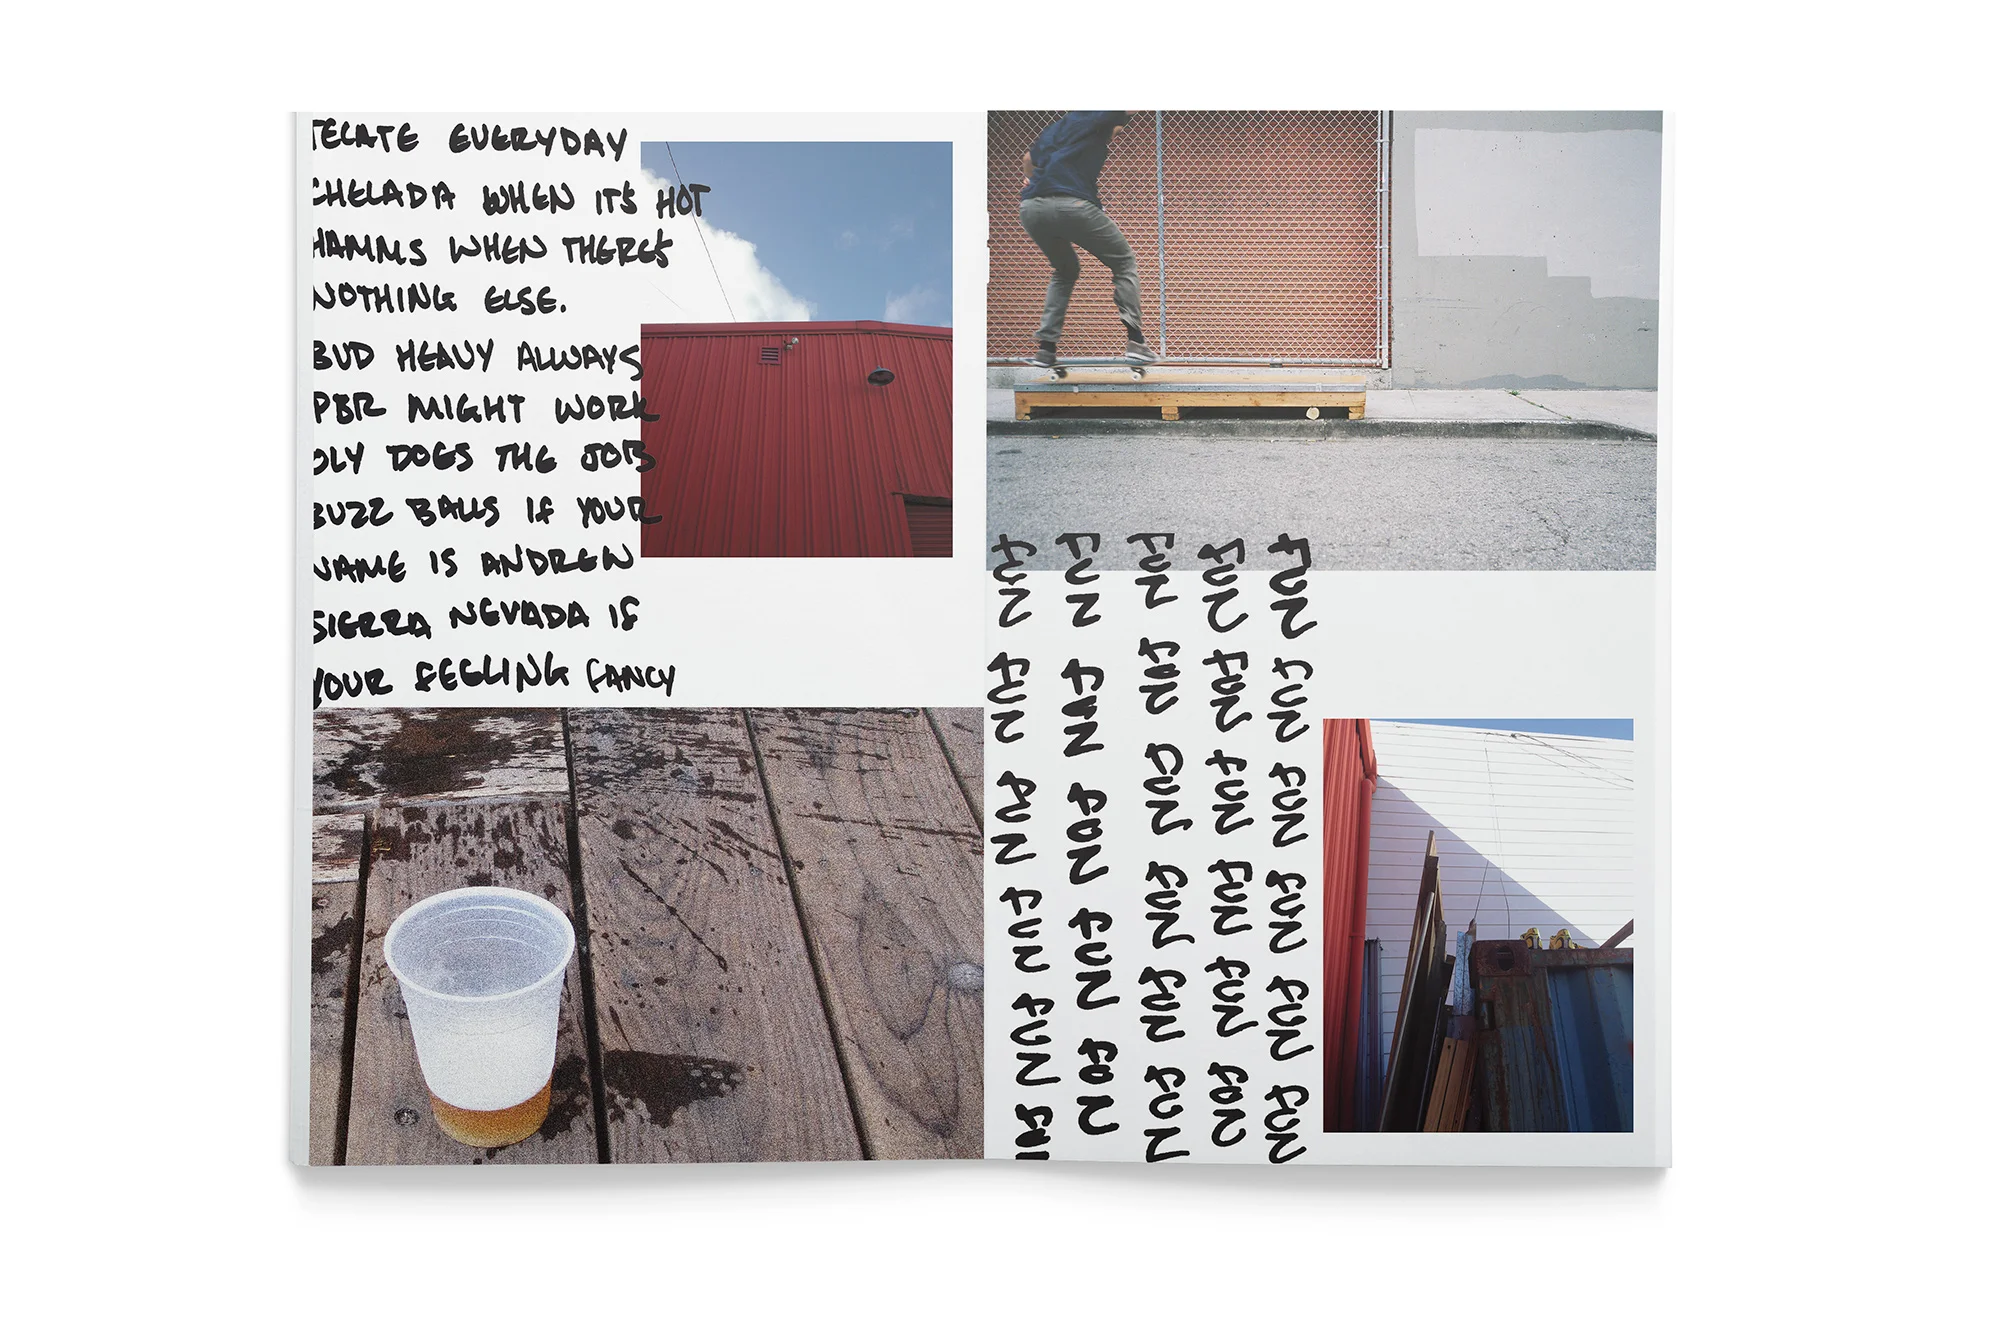 TECATE EVERYDAY
CHELADA WHEN IT'S HOT
HAMMS WHEN THERE'S
NOTHING ELSE.
BUD HEAVY ALWAYS
PBR MIGHT WORK
OLY DOES THE JOB
BUZZ BALLS IF YOUR
NAME IS ANDREW
SIERRA NEVADA IF
YOUR FEELING FANCY
FUN FUN FUN FUN FUN FUN
FUN FUN FUN FUN FUN FUN
FUN FUN FUN FUN FUN FUN
FUN FUN FUN FUN FUN
FUN FUN FUN FUN FUN FUN